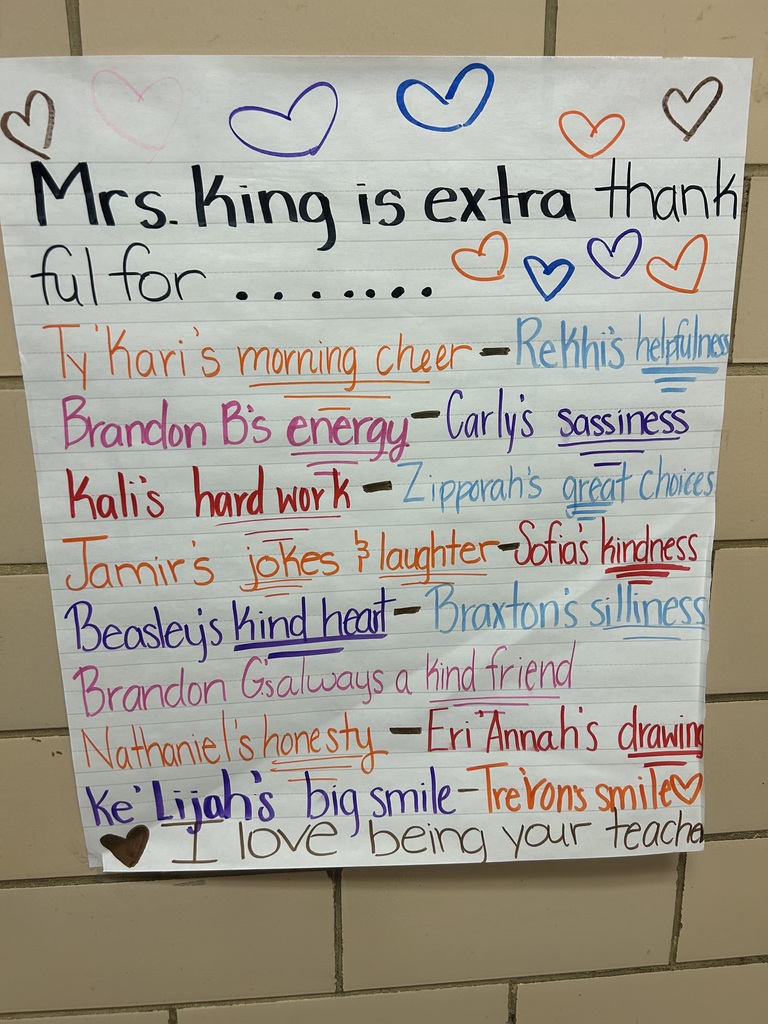 Mrs. King is extra thank
ful for .......
Ty'Kari's morning cheer - Rekhi's helpfulness
Brandon B's energy - Carly's sassiness
Kali's hard work - Zipporah's great choices
Jamir's jokes & laughter - Sofia's kindness
Beasley's kind heart - Braxton's silliness
Brandon G's always a kind friend
Nathaniel's honesty - Eri'Annah's drawing
Ke'Lijah's big smile - Tre'Von's smile
I love being your teache